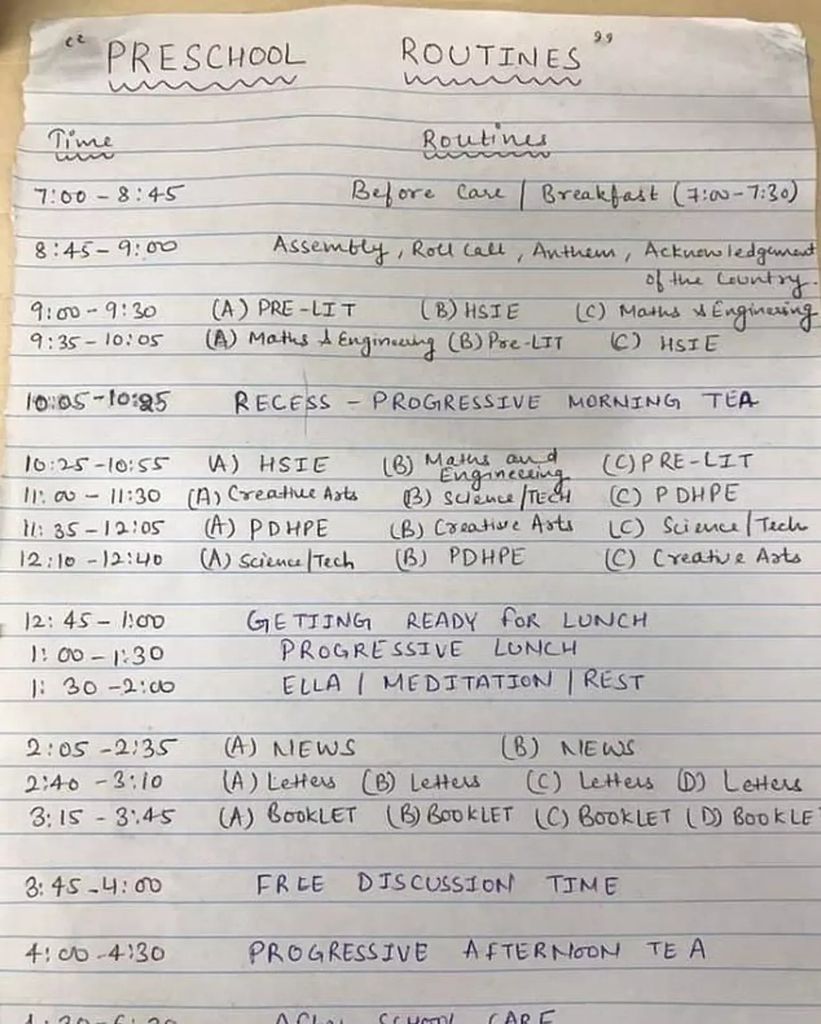 “ PRESCHOOL ROUTINES ”
Time Routines
7:00 - 8:45 Before Care / Breakfast (7:00-7:30)
8:45 - 9:00 Assembly, Roll Call, Anthem, Acknowledgement
of the Country.
9:00 - 9:30 (A) PRE-LIT (B) HSIE (C) Maths & Engineering
9:35 - 10:05 (A) Maths & Engineering (B) Pre-LIT (C) HSIE
10:05 - 10:25 RECESS - PROGRESSIVE MORNING TEA
10:25 - 10:55 (A) HSIE (B) Maths and Engineering (C) PRE-LIT
11:00 - 11:30 (A) Creative Arts (B) Science/TECH (C) PDHPE
11:35 - 12:05 (A) PDHPE (B) Creative Arts (C) Science/Tech
12:10 - 12:40 (A) Science/Tech (B) PDHPE (C) Creative Arts
12:45 - 1:00 GETTING READY FOR LUNCH
1:00 - 1:30 PROGRESSIVE LUNCH
1:30 - 2:00 ELLA / MEDITATION / REST
2:05 - 2:35 (A) NEWS (B) NEWS
2:40 - 3:10 (A) Letters (B) Letters (C) Letters (D) Letters
3:15 - 3:45 (A) BOOKLET (B) BOOKLET (C) BOOKLET (D) BOOKLE
3:45 - 4:00 FREE DISCUSSION TIME
4:00 - 4:30 PROGRESSIVE AFTERNOON TEA
SCHOOL CARE